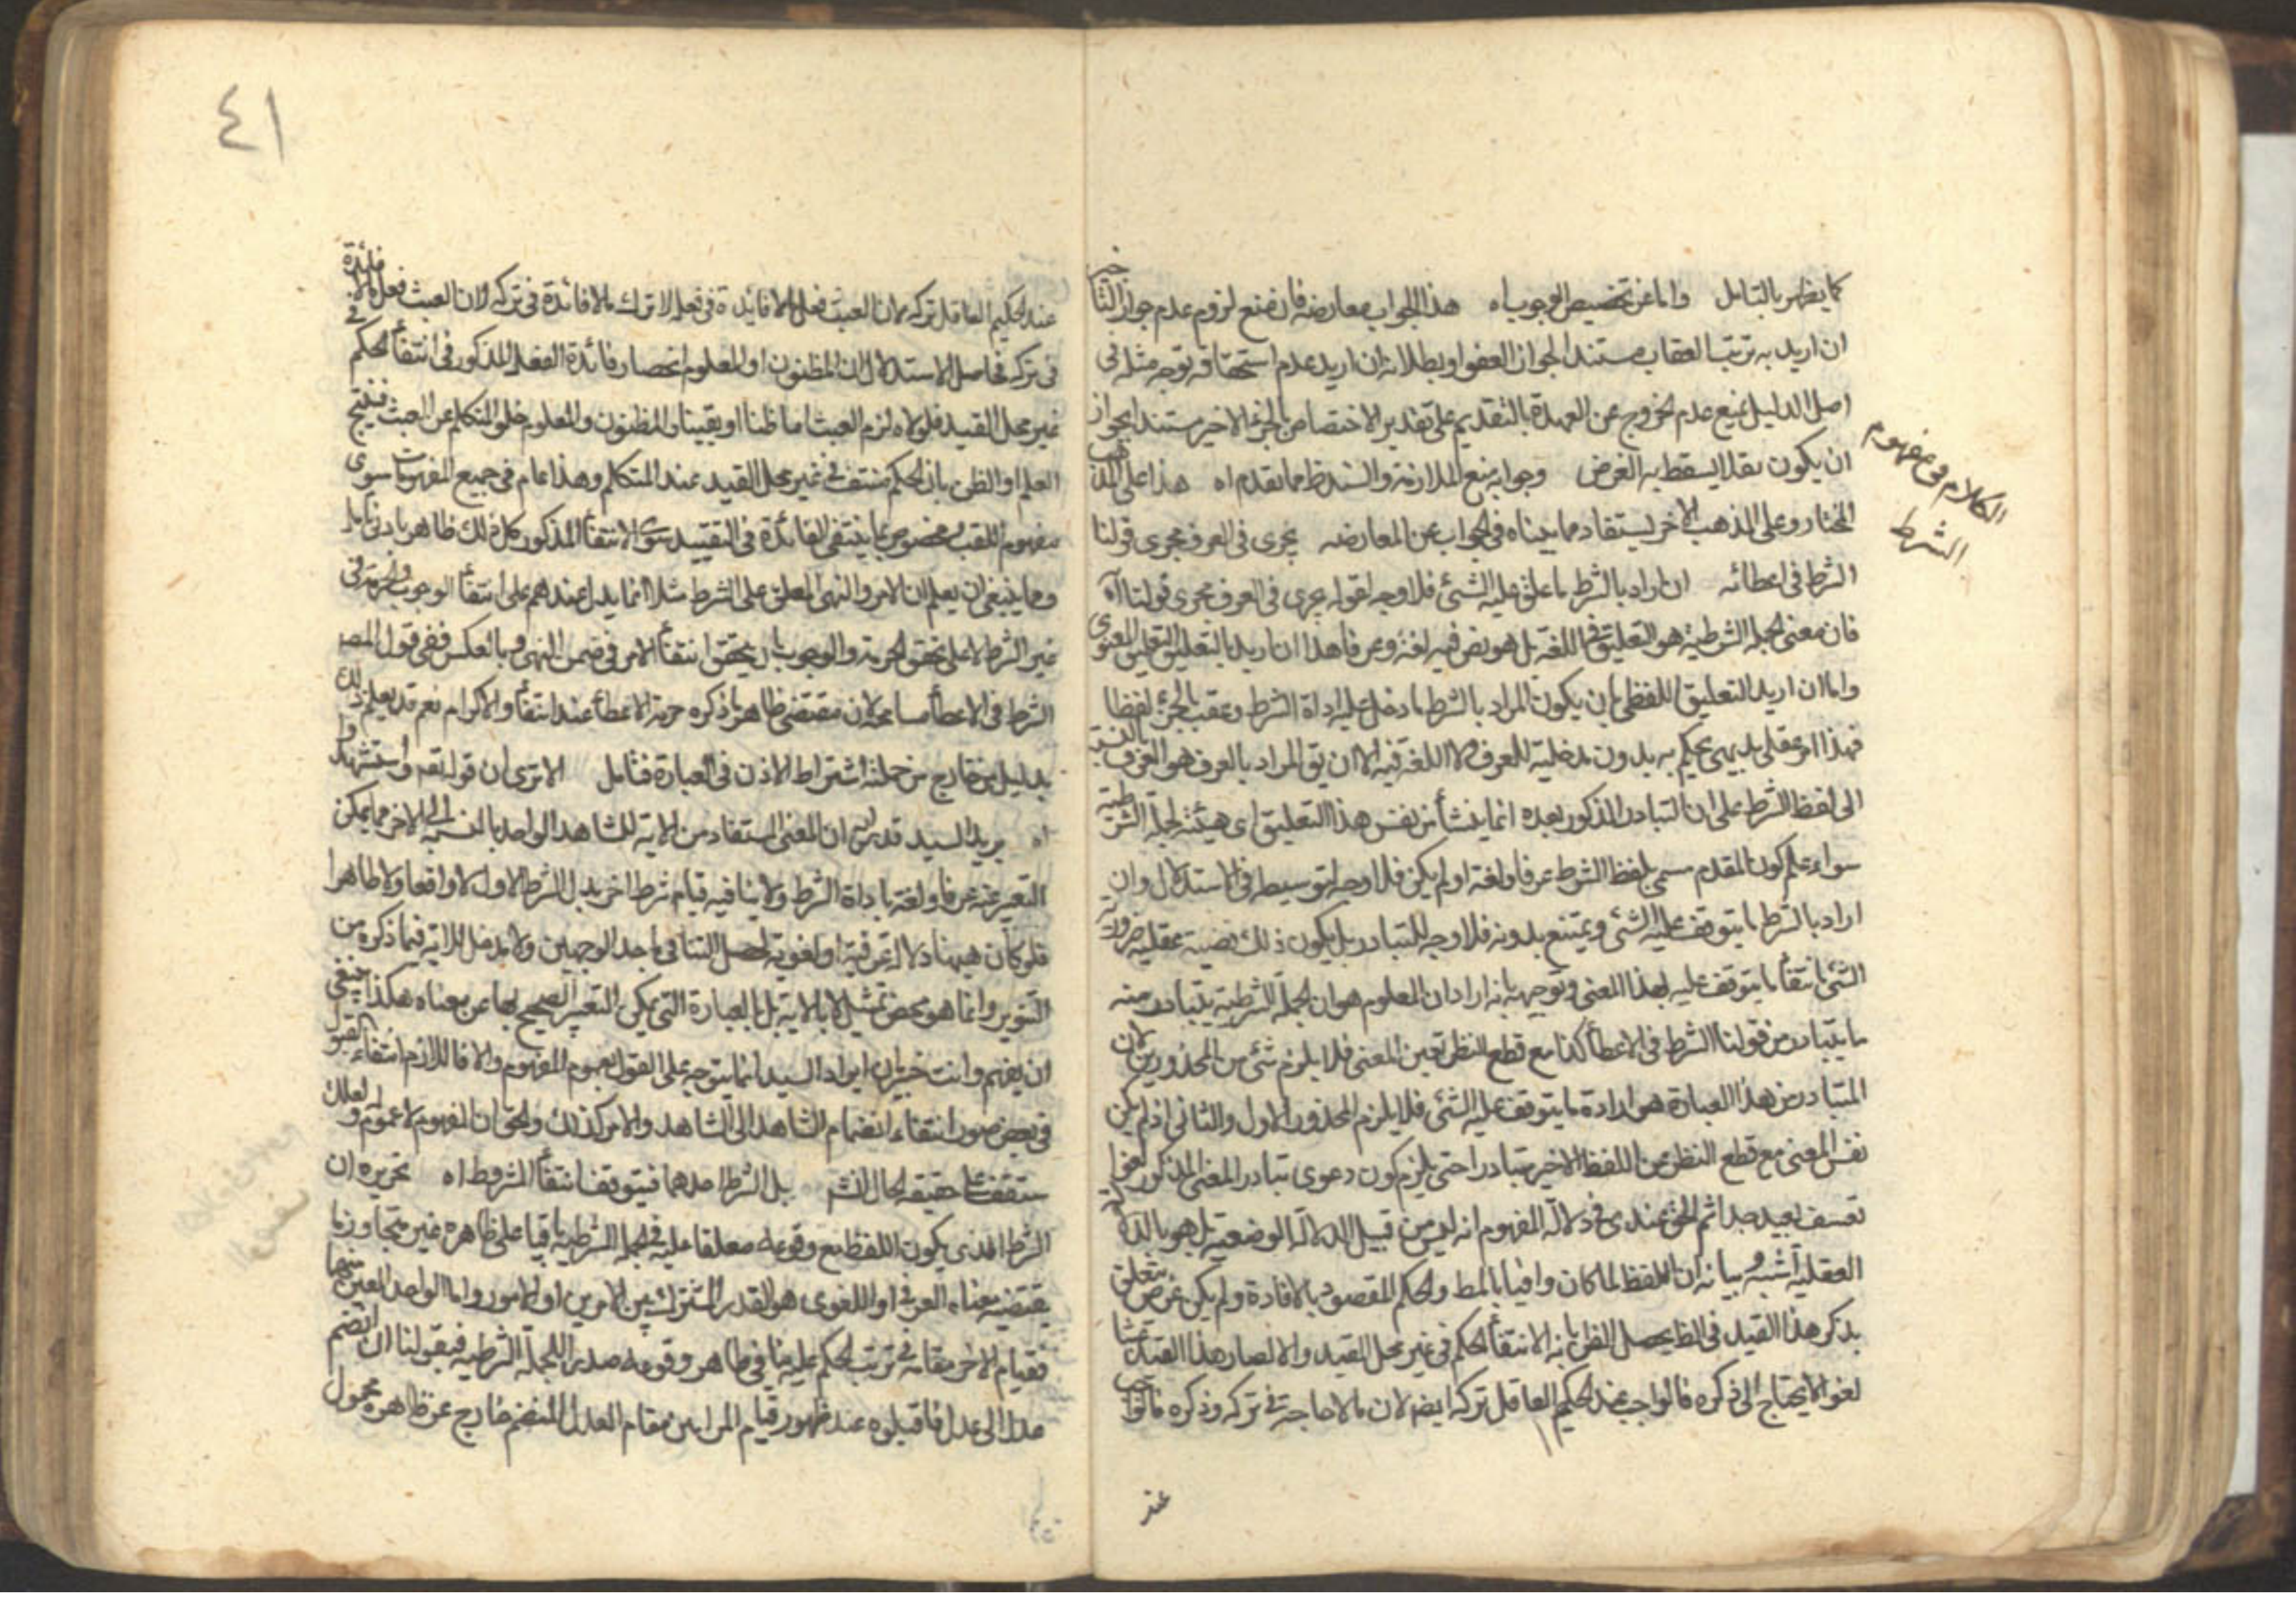 كما يظهر بالتامل واما عن تخصيص الوجوب اه هذا الجواب معارضه فان منع لزوم عدم جواز التاخير
ان اريد به ترتب العقاب مستند الجواز العفو او بطلانه ان اريد عدم استحقاقه توجه مثله فى
اصل الدليل بمنع عدم الخروج عن العهدة بالتقديم على تقدير الاختصاص بالجزء الاخير مستندا بجواز
ان يكون نفلا يسقط به الفرض وجوابه منع الملازمة والسند ظ مما تقدم اه هذا على المذهب
المختار وعلى المذهب الاخر يستفاد مما بيناه فى الجواب عن المعارضه يجرى فى العرف مجرى قولنا
الكلام فى مفهوم
الشرط
الشرط فى اعطائه ان اراد بالشرط ما علق عليه الشئ فلا وجه لقوله يجرى فى العرف مجرى قولنا اه
فان معنى الجملة الشرطية هو التعليق فى اللغة بل هو نص فيه لغة وعرفا هذا ان اريد بالتعليق التعليق المعنوى
واما ان اريد التعليق اللفظى بان يكون المراد بالشرط ما دخل عليه اداة الشرط وعقب بالجزء لفظا
فهذا امر عقلى بديهى يحكم به بدون مدخلية للعرف ولا اللغة فيه الا ان يق المراد بالعرف هو العرف بالنسبة
الى لفظ الشرط على ان التبادر المذكور بعده انما ينشأ من نفس هذا التعليق اى هيئة الجملة الشرطية
سواء علم كون المقدم مسمى بلفظ الشرط عرفا ولغة او لم يكن فلا وجه لتوسيطه فى الاستدلال وان
اراد بالشرط ما يتوقف عليه الشئ ويمتنع بدونه فلا وجه للتبادر بل يكون ذلك قضية عقلية ضرورة
الشئ بانتفاء ما يتوقف عليه بهذا المعنى وتوجيهه بانه اراد ان المعلوم هو ان الجملة الشرطية يتبادر منه
ما يتبادر من قولنا الشرط فى الاعطاء كذا مع قطع النظر تعين المعنى فلا يلزم شئ من المحذورين لان
المتبادر من هذا العبارة هو ارادة ما يتوقف عليه الشئ فلا يلزم المحذور الاول والثانى اذ لم يكن
نفس المعنى مع قطع النظر عن اللفظ الاخير متبادرا حتى يلزم كون دعوى تبادر المعنى المذكور لغوا
تعسف بعيد جدا ثم الحق عندى فى دلالة المفهوم انه ليس من قبيل الدلالة الوضعية بل هو بالدلالة
العقلية اشبه وبيانه ان اللفظ لما كان وافيا بالمط والحكم المقصود بالافادة ولم يكن غرض يتعلق
بذكر هذا القيد فى الظ يحصل الظن بانه لانتفاء الحكم فى غير محل القيد والا لصار هذا القيد عبثا
لغوا لا يحتاج الى ذكره فالواجب عند الحكيم العاقل تركه ايضا لان ما لا حاجة فى تركه وذكره فالواجب
عند
٤١
عند الحكيم العاقل تركه لان العبث فعل ما لا فائدة فى فعله لا ترك ما لا فائدة فى تركه لان العبث فعل ما لا فائدة
فى تركه فحاصل الاستدلال ان المظنون او المعلوم انحصار فائدة الفعل المذكور فى انتفاء الحكم فى
غير محل القيد فلولاه لزم العبث اما ظنا او يقينا والمظنون والمعلوم خلو المتكلم عن العبث فينتج
العلم او الظن بان الحكم منتف فى غير محل القيد عند المتكلم وهذا عام فى جميع المفهومات سوى
مفهوم اللقب مخصوص بما ينتفى الفائدة فى التقييد سوى الانتفاء المذكور كل ذلك ظاهر بادنى تامل
ومما ينبغى ان يعلم ان الامر والنهى المعلق على الشرط مثلا انما يدل عندهم على انتفاء الوجوب والحرمة فى
غير الشرط لا على تحقق الحرمة والوجوب بان يحقق انتفاء الامر فى ضمن النهى وبالعكس ففى قول المص
الشرط فى الاعطاء مسامحة لان مقتضى ظاهر ما ذكره حرمة الاعطاء عند انتفاء الاكرام نعم قد يعلم ذلك
بدليل من خارج من جملته اشتراط الاذن فى العبارة فتامل الا ترى ان قوله تع واستشهدوا
اه يريد السيد قدس ان المعنى المستفاد من الاية للشاهد الواحد بالنسبة الى الاخر مما يمكن
التعبير عنه عرفا ولغة باداة الشرط ولا ينافيه قيام شرط اخر بدل الشرط الاول لا واقعا ولا ظاهرا
فلو كان هيهنا دلالة عرفية او لغوية لحصل التنافى باحد الوجهين ولا مدخل للاية فيما ذكره من
التنوير وانما هو محض تمثيل لا بالاية بل بالعبارة التى يمكن التعبير الصحيح بها عن معناه هكذا ينبغى
ان يفهم وانت خبير بان ايراد السيد انما يتوجه على القول بعموم المفهوم والا فاللازم انتفاء القبول
فى بعض صور انتفاء انضمام الشاهد الى الشاهد والامر كذلك والحق ان المفهوم لا عموم له ولعلك
ستقف على حقيقة الحال انش بل الشرط احدهما فيتوقف انتفاء المشروط اه تحريره ان
الشرط الذى يكون اللفظ مع وقوعه معلقا عليه فى الجملة الشرطية باقيا على ظاهره غير متجاوز عما
يقتضيه معناه العرفى او اللغوى هو القدر المشترك بين الامرين او الامور واما الواحد المعين منهما
فقيام الاخر مقامه فى ترتب الحكم عليه ينافى ظاهر وقوعه صدر الجملة الشرطية فبقولنا ان انضم
عدل الى عدل فاقبلوه عند ظهور قيام المراتين مقام العدل المنضم خارج عن ظاهره محمول